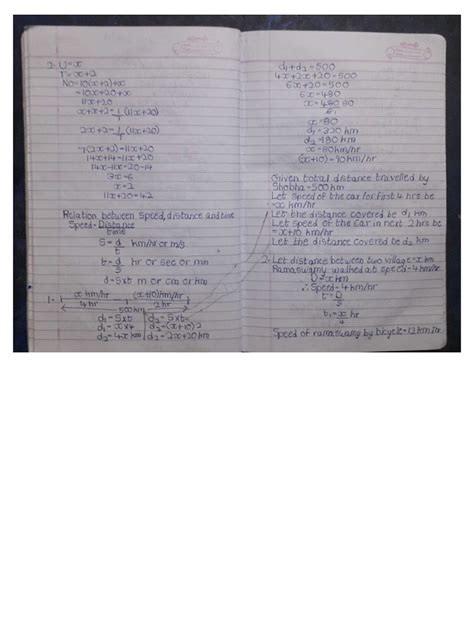 2. U=x
T=x+2
No=10(x+2)+x
=10x+20+x
11x+20
x+x+2=1/7(11x+20)
2x+2=1/7(11x+20)
7(2x+2)=11x+20
14x+14=11x+20
14x-11x=20-14
3x=6
x=2
11x+20=42
Relation between speed, distance and time
Speed=Distance
time
S=d/t km/hr or m/s
t=d/s hr or sec or min
d=sxt m or cm or km
1- x km/hr (x+10)km/hr
4hr 2hr
500km
d₁=sxt d₂=sxt
d₁=x×4 d₂=(x+10)2
d₁=4x km d₂=2x+20km
d₁+d₂=500
4x+2x+20=500
6x+20=500
6x=480
x=480 80
x=80
d₁=320 km
d₂=180 km
x=80km/hr
(x+10)=90km/hr
Given total distance travelled by
Shobha=500km
Let speed of the car for first 4 hrs be
=x km/hr
Let the distance covered be d₁ km
Let speed of the car in next 2 hrs be
=x+10 km/hr
Let the distance covered be d₂ km
2- Let distance between two village=x km
Ramaswamy walked at speed=4km/hr
D=x km
∴ Speed=4km/hr
t=D/S
t₁=x/4 hr
Speed of ramaswamy by bicycle=12km/hr